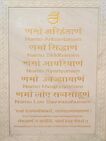 णमो अरिहंताणं
Namo Arihantanam
णमो सिद्धाणं
Namo Siddhanam
णमो आयरियाणं
Namo Ayariyanam
णमो उवज्झायाणं
Namo Uvajjhayanam
णमो लोए सव्वसाहूणं
Namo Loe Savvasahunam